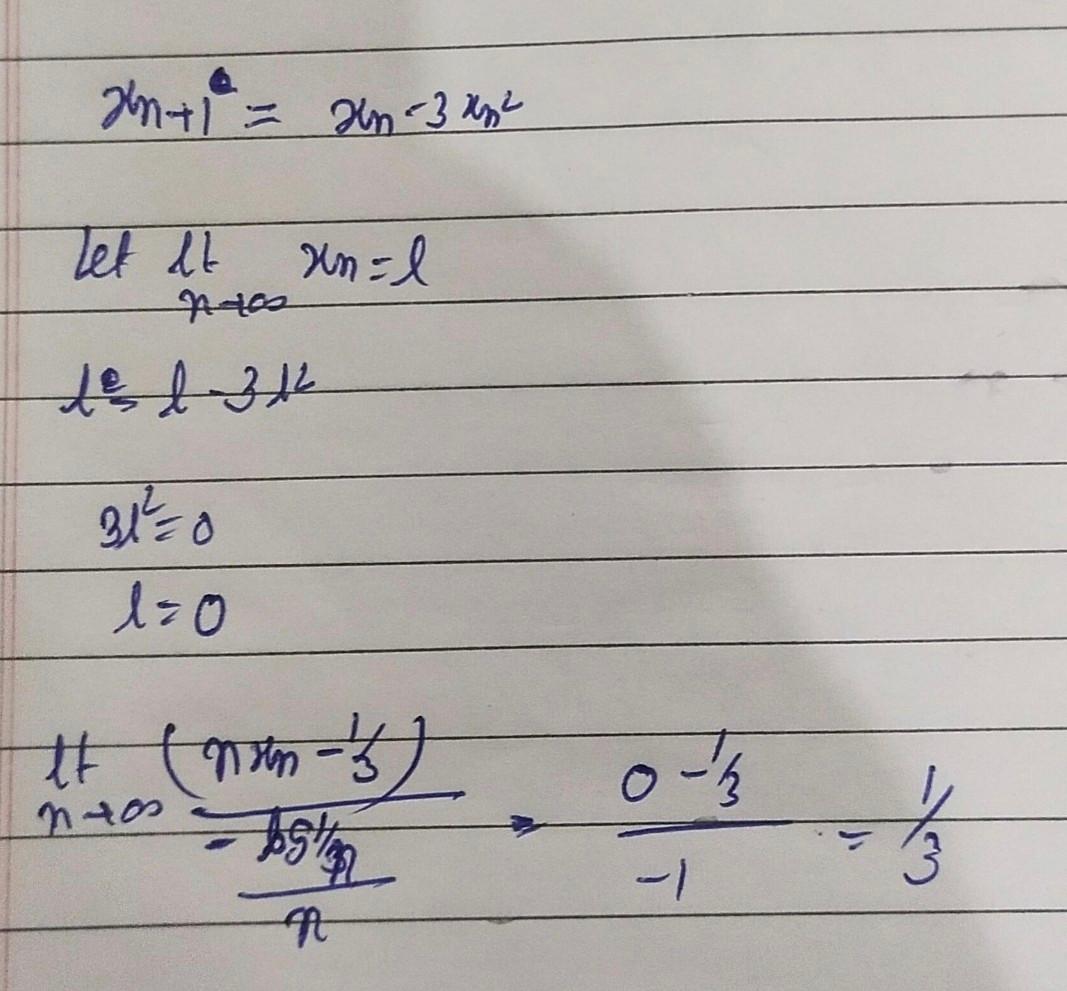 xn+1 = xn - 3xn²
Let lt xn = l
n→∞
l = l - 3l²
3l² = 0
l = 0
lt (n xn - 1/3) / - n ⇒ 0 - 1/3 / -1 = 1/3
n→∞